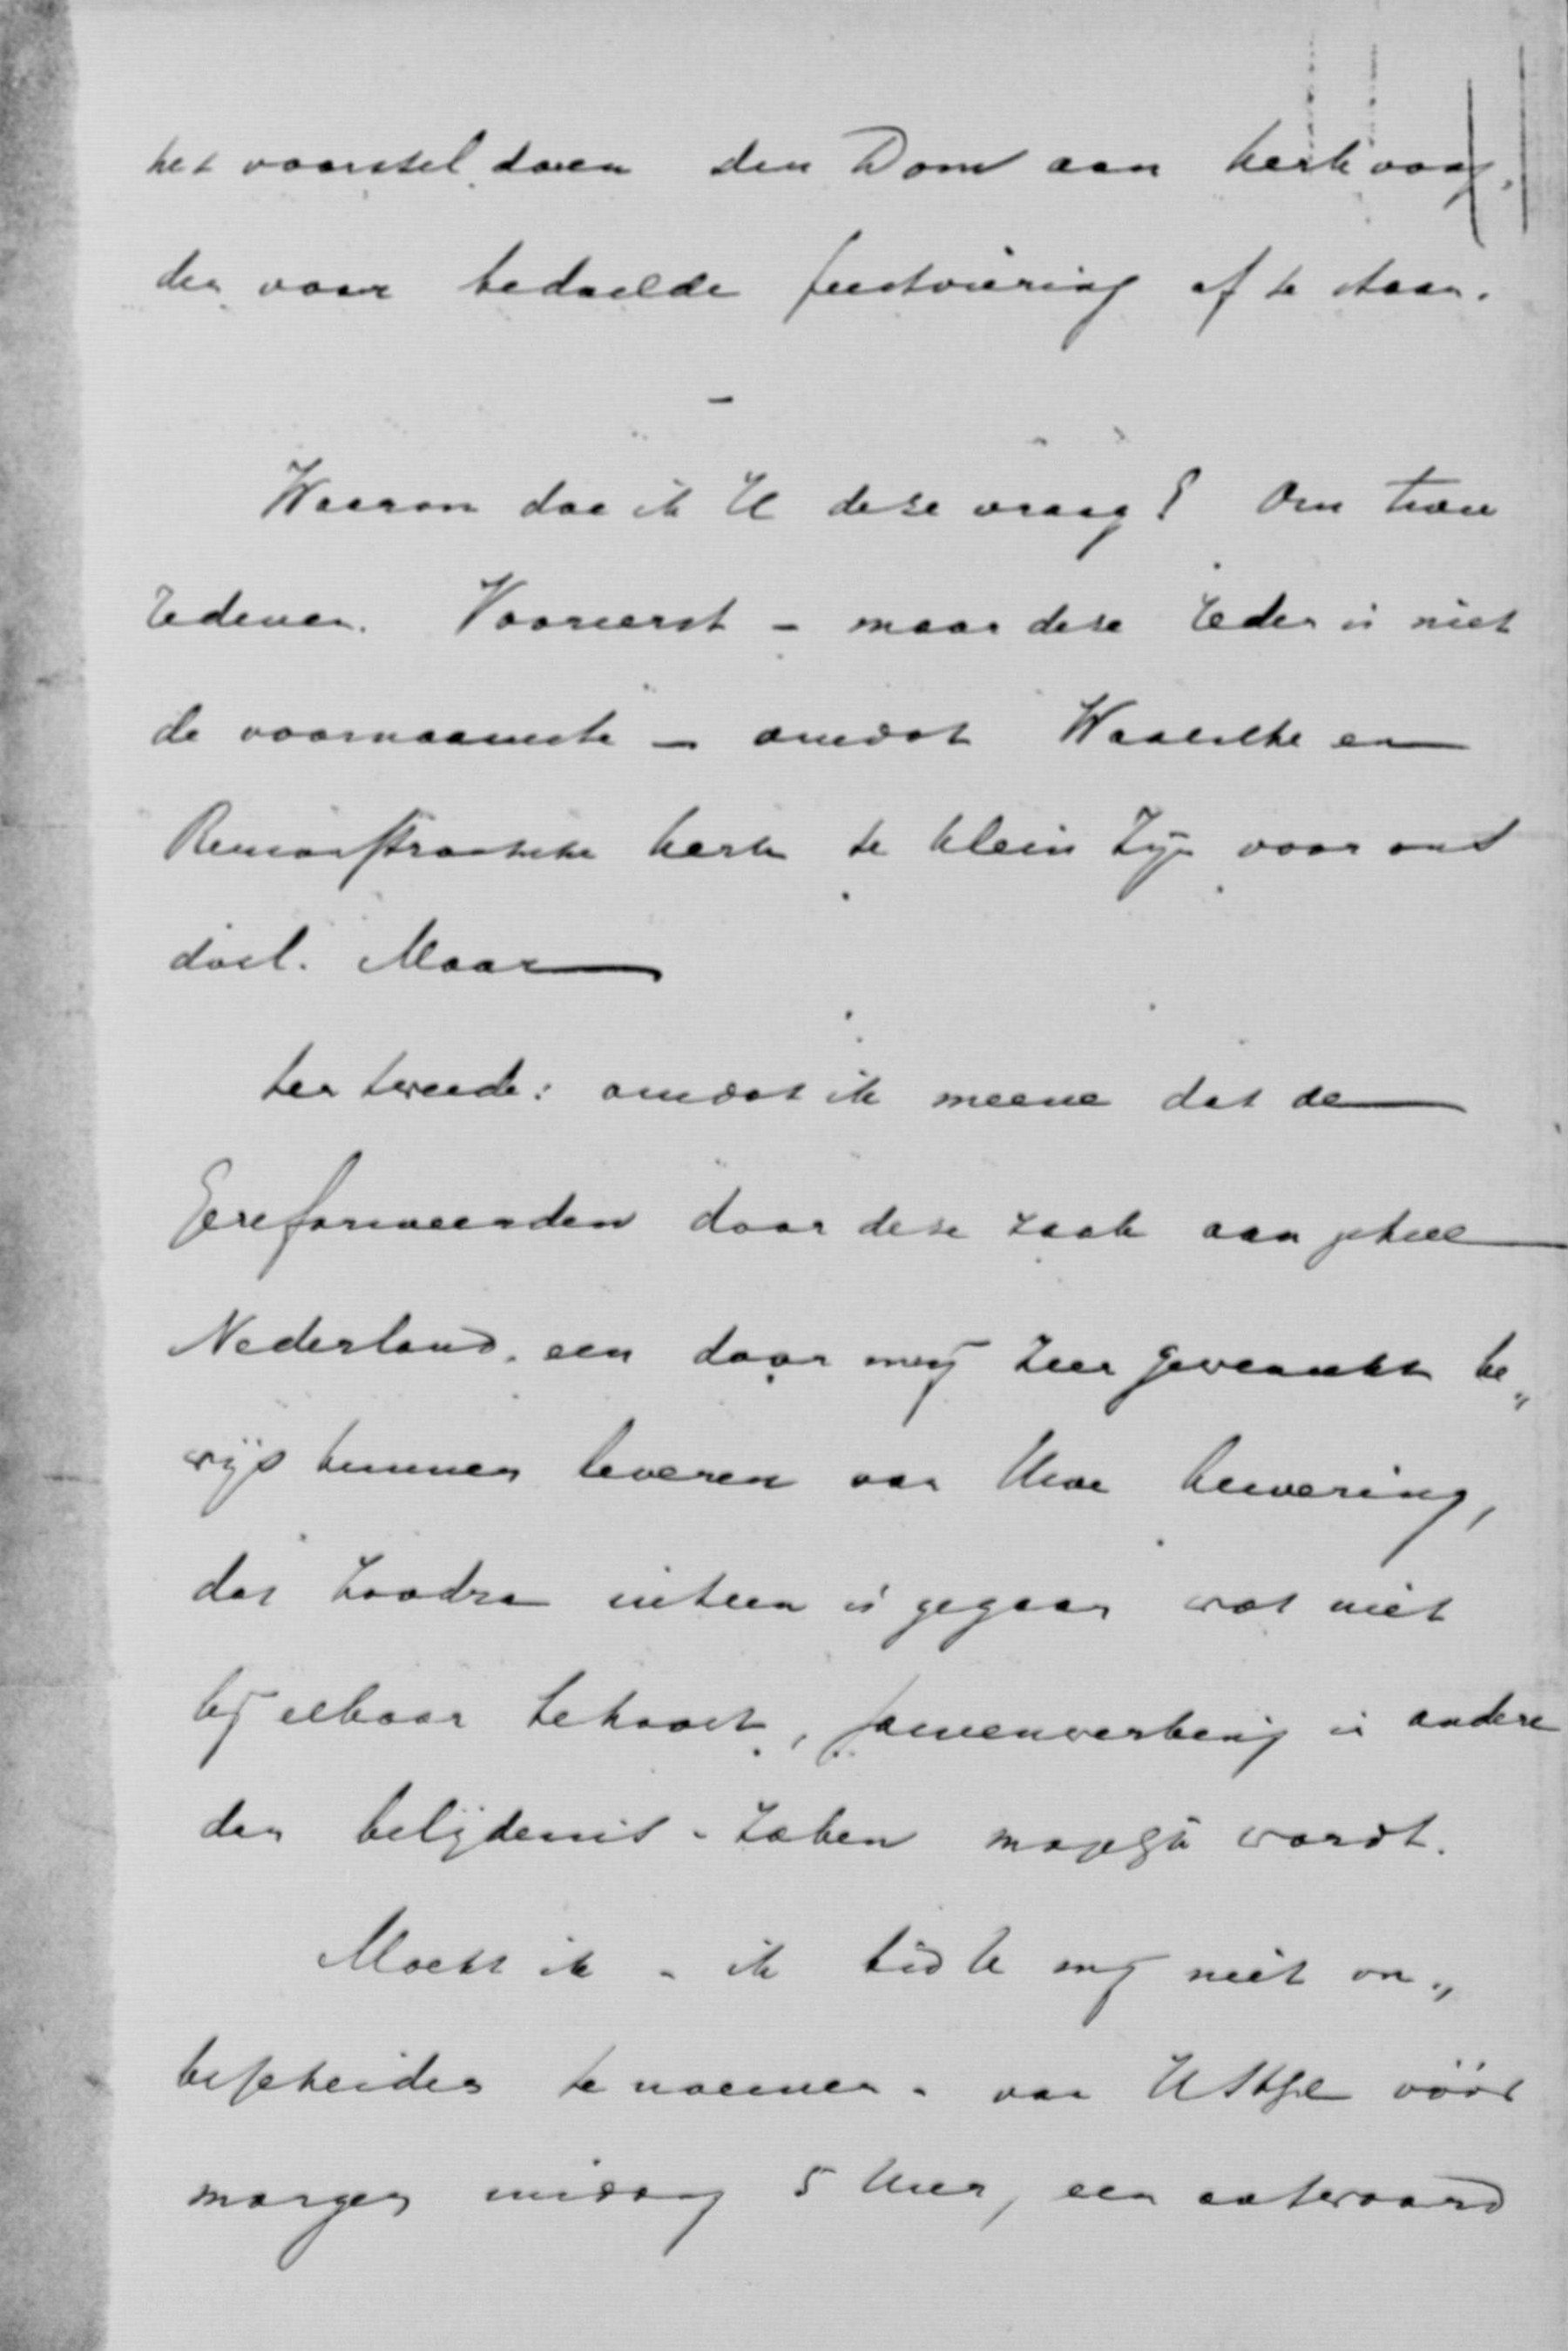 het voorstel doen den Dom aan kerkvoog„
den voor bedoelde feestviering af te staan.
–
Waarom doe ik U deze vraag? Om twee
redenen. Vooreerst – maar deze reden is niet
de voornaamste – omdat Waalsche en
Remonstrantsche kerk te klein zijn voor ons
doel. Maar
ten tweede: omdat ik meene dat de
Gereformeerden door deze zaak aan geheel
Nederland, een door mij zeer gewenscht be„
wijs kunnen leveren van Uwe bewering,
dat zoodra uiteen is gegaan wat niet
bij elkaar behoort, samenwerking in andere
dan belijdenis-zaken mogelijk wordt.
Mocht ik – ik bid U mij niet on„
bescheiden te noemen – van UHgl vóór
morgen middag 5 Uur, een antwoord